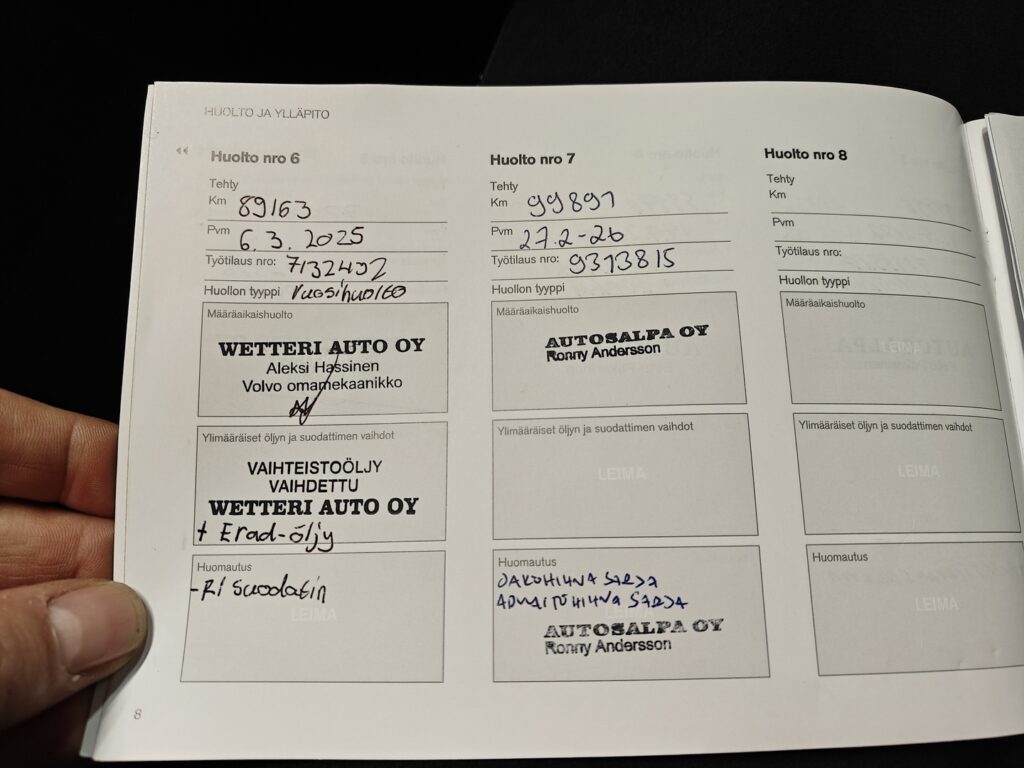 HUOLTO JA YLLÄPITO
Huolto nro 6
Tehty
Km 89163
Pvm 6.3.2025
Työtilaus nro: 7132402
Huollon tyyppi Vuosihuolto
Määräaikaishuolto
WETTERI AUTO OY
Aleksi Hassinen
Volvo omamekaanikko
Ylimääräiset öljyn ja suodattimen vaihdot
VAIHTEISTOÖLJY
VAIHDETTU
WETTERI AUTO OY
+ Erad-öljy
Huomautus
-RI suodatin
LEIMA
Huolto nro 7
Tehty
Km 99891
Pvm 27.2-26
Työtilaus nro: 9373815
Huollon tyyppi
Määräaikaishuolto
AUTOSALPA OY
Ronny Andersson
Ylimääräiset öljyn ja suodattimen vaihdot
LEIMA
Huomautus
JAKOHIHNA SARJA
APULAITEHIHNA SARJA
AUTOSALPA OY
Ronny Andersson
Huolto nro 8
Tehty
Km
Pvm
Työtilaus nro:
Huollon tyyppi
Määräaikaishuolto
LEIMA
Ylimääräiset öljyn ja suodattimen vaihdot
LEIMA
Huomautus
LEIMA
8